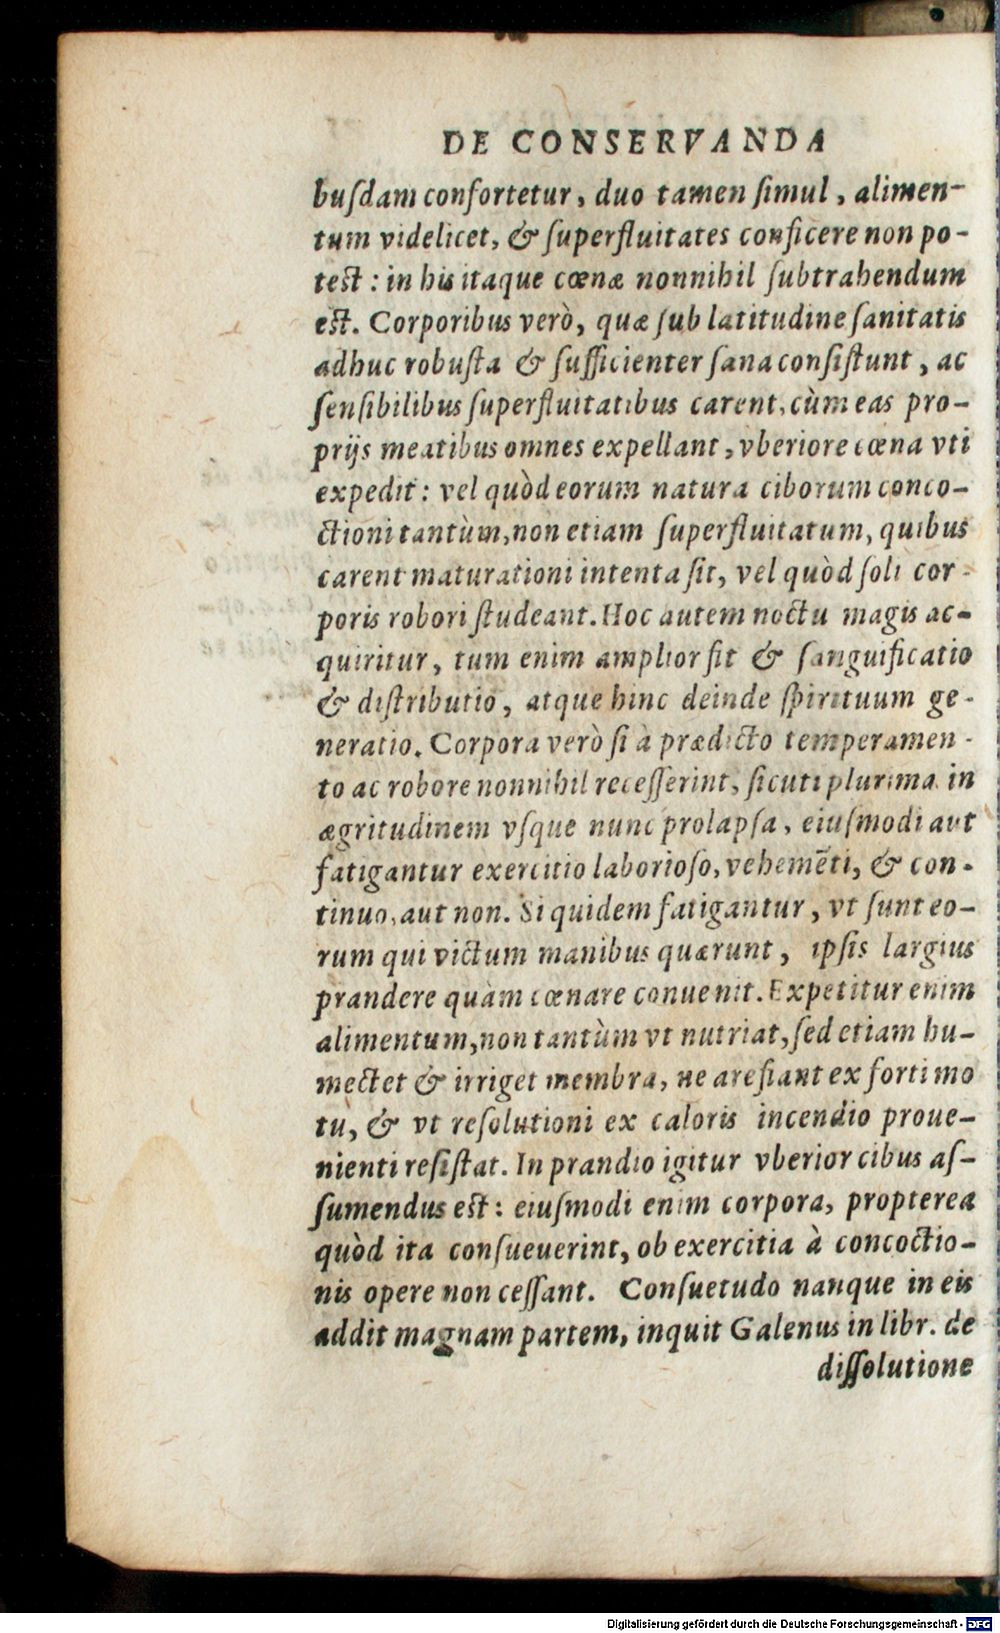 DE CONSERVANDA
buſdam confortetur, duo tamen ſimul, alimen-
tum videlicet, & ſuperfluitates conficere non po-
test: in his itaque cœnæ nonnihil ſubtrahendum
est. Corporibus verò, quæ ſub latitudine ſanitatis
adhuc robuſta & ſufficienter ſana conſiſtunt, ac
ſenſibilibus ſuperfluitatibus carent, cùm eas pro-
prijs meatibus omnes expellant, vberiore cœna vti
expedit: vel quòd eorum natura ciborum conco-
ctioni tantùm, non etiam ſuperfluitatum, quibus
carent maturationi intenta ſit, vel quòd ſoli cor-
poris robori ſtudeant. Hoc autem noctu magis ac-
quiritur, tum enim amplior fit & ſanguificatio
& diſtributio, atque hinc deinde ſpirituum ge-
neratio. Corpora verò ſi à prædicto temperamen-
to ac robore nonnihil receſſerint, ſicuti plurima in
ægritudinem vſque nunc prolapſa, eiuſmodi aut
fatigantur exercitio laborioſo, vehemēti, & con-
tinuo, aut non. Si quidem fatigantur, vt ſunt eo-
rum qui victum manibus quærunt, ipſis largius
prandere quàm cœnare conuenit. Expetitur enim
alimentum, non tantùm vt nutriat, ſed etiam hu-
mectet & irriget membra, ne areſiant ex forti mo
tu, & vt reſolutioni ex caloris incendio proue-
nienti reſiſtat. In prandio igitur vberior cibus aſ-
ſumendus est: eiuſmodi enim corpora, propterea
quòd ita conſueuerint, ob exercitia à concoctio-
nis opere non ceſſant. Conſuetudo nanque in eis
addit magnam partem, inquit Galenus in libr. de
diſſolutione
Digitalisierung gefördert durch die Deutsche Forschungsgemeinschaft - DFG